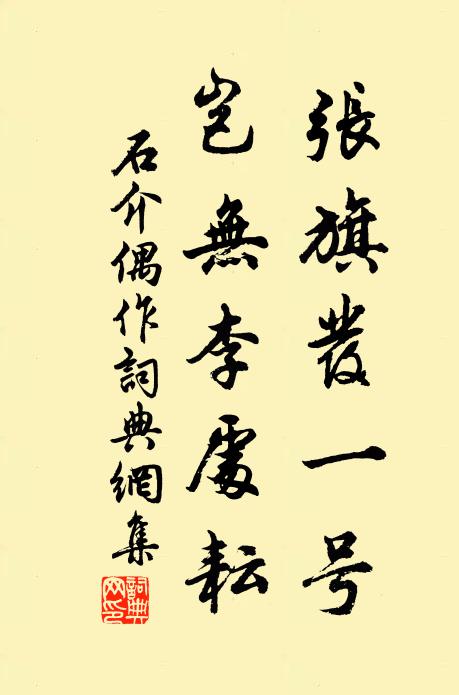 張旗發一号
岂無李處耘
石介偶作詞典網集
詞典網印